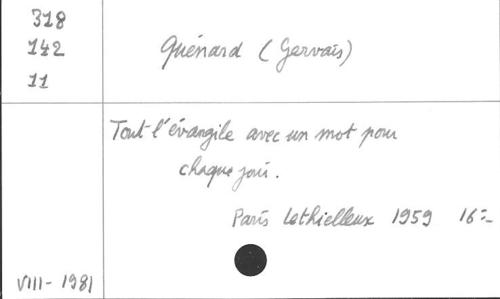 318
142
11
Quénard (Gervais)
Tout l'évangile avec un mot pour
chaque jour.
Paris Lethielleux 1959 16:-
VIII-1981